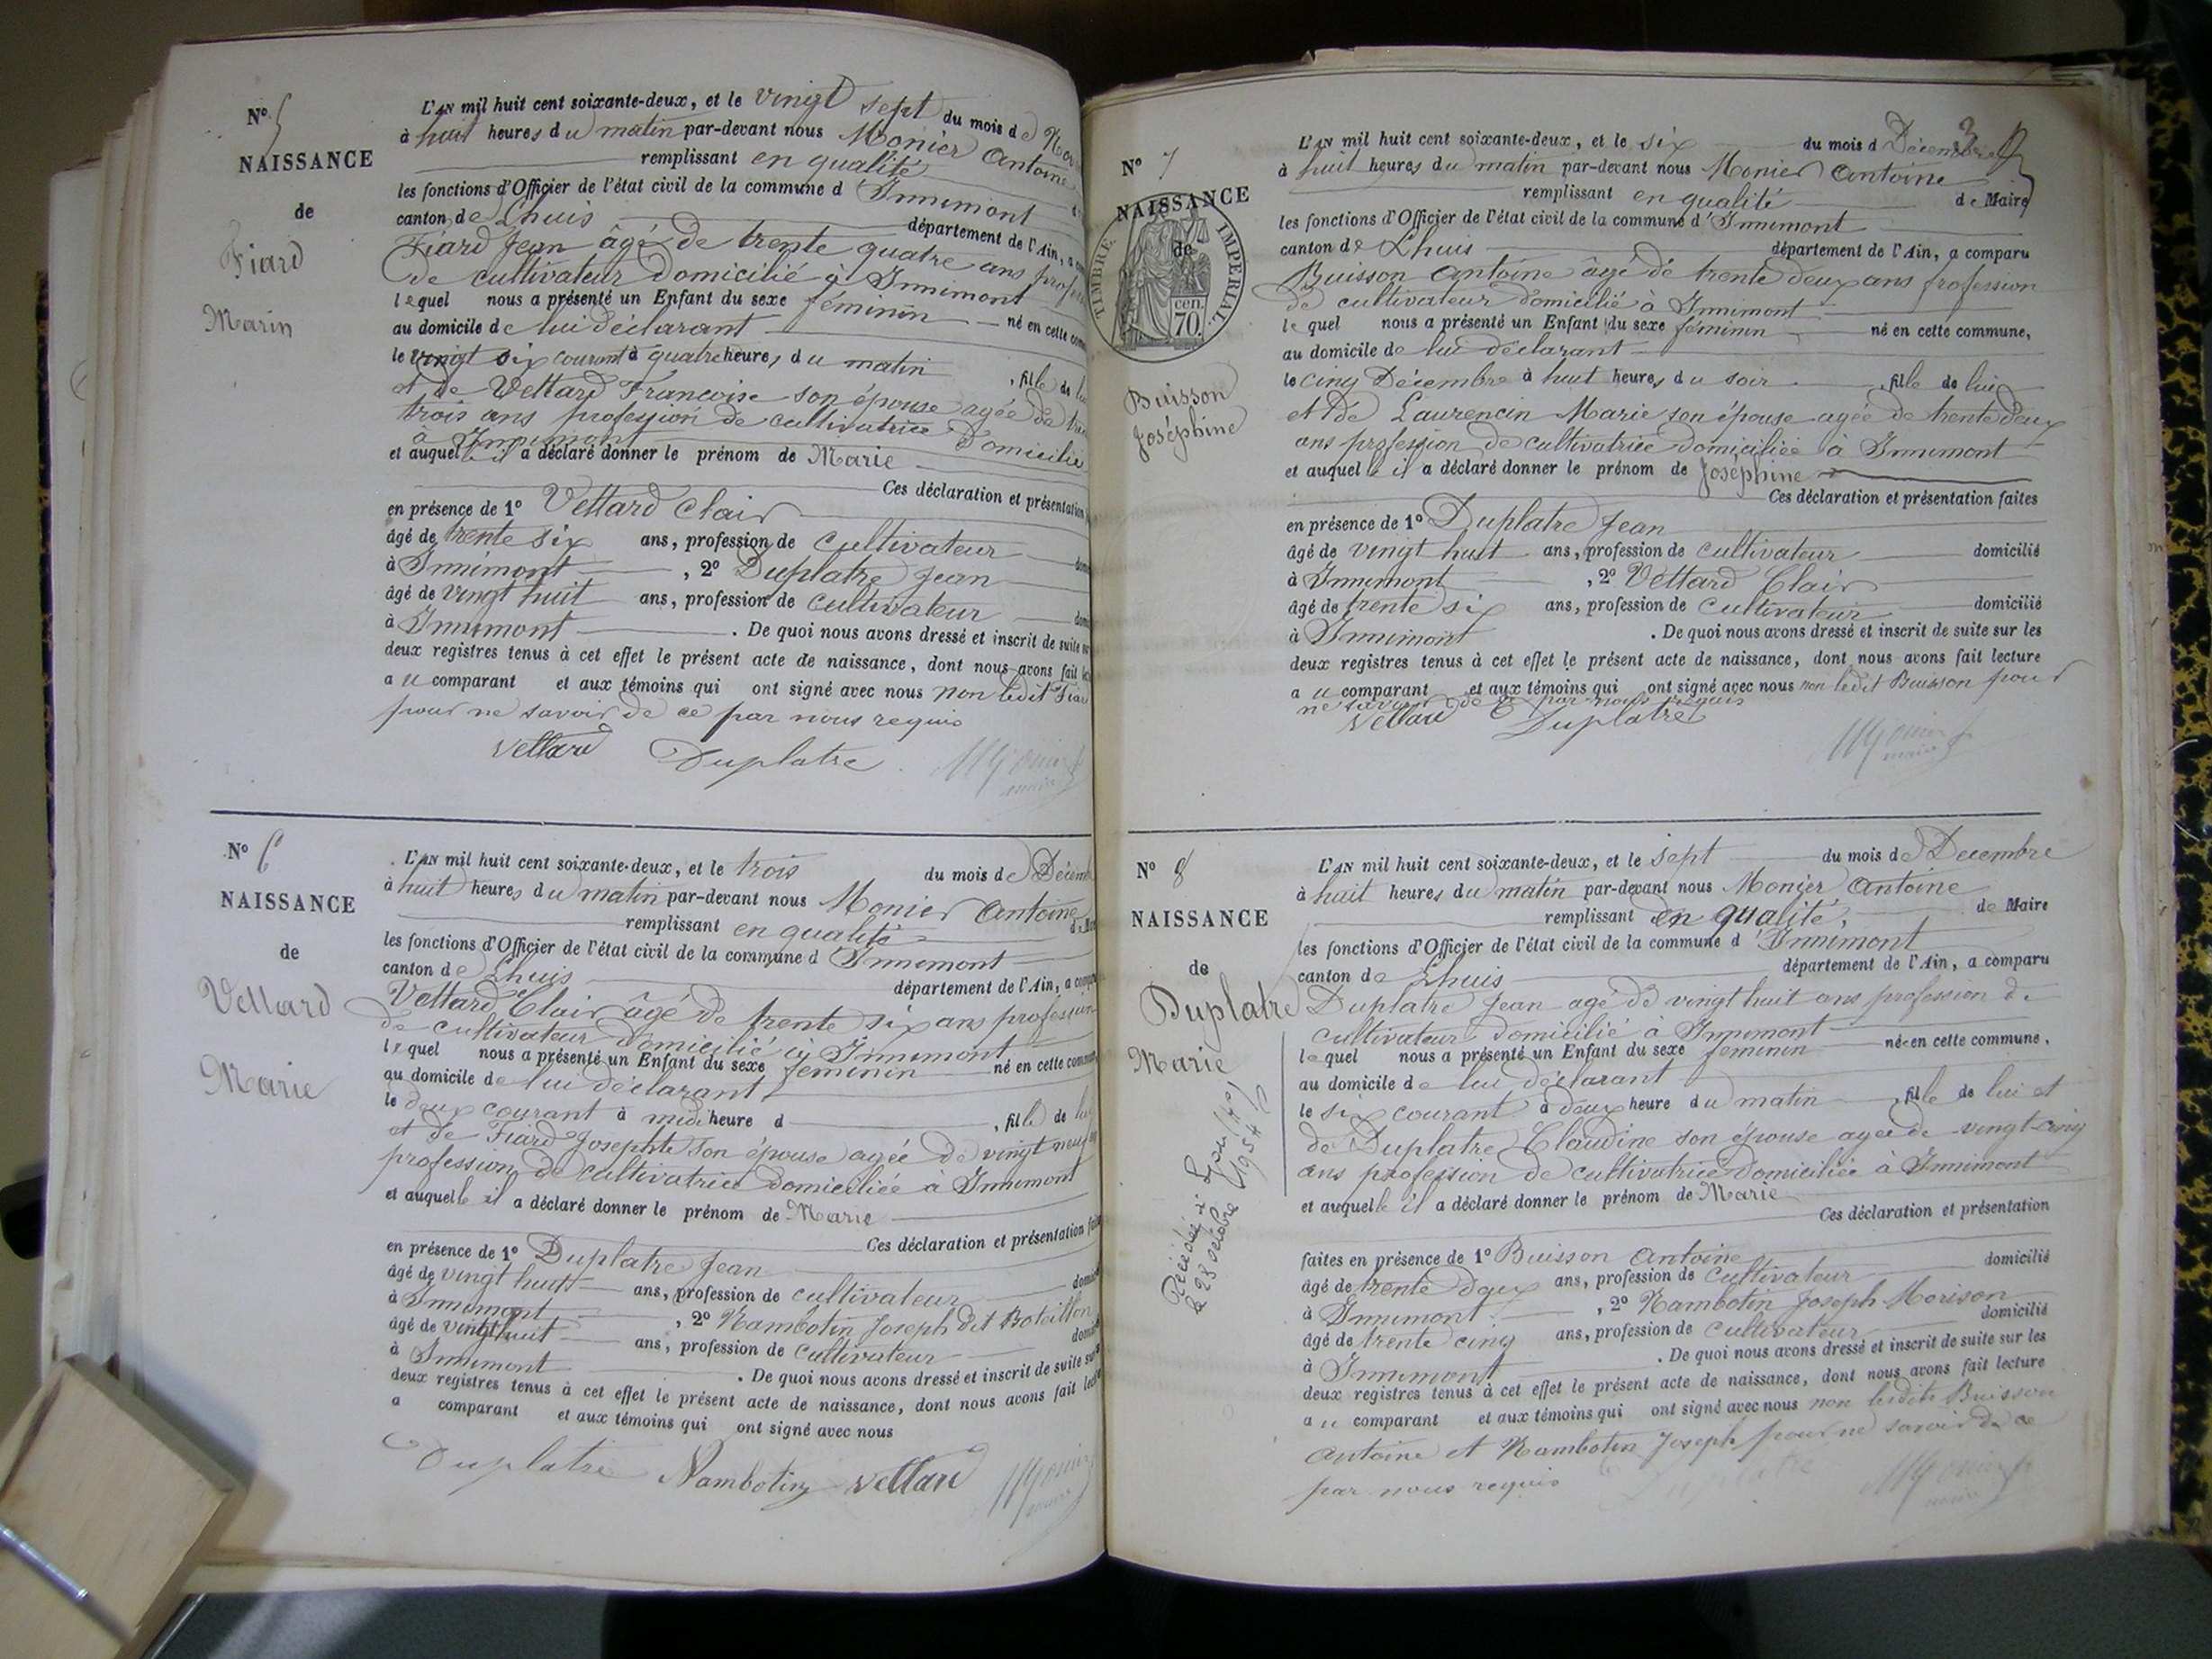 N° 5
NAISSANCE
de
Fiard
Marin
L'AN mil huit cent soixante-deux, et le vingt sept du mois de
à huit heures du matin par-devant nous Monier Antoine
remplissant en qualité
les fonctions d'Officier de l'état civil de la commune d'Innimont
canton de Lhuis département de l'Ain, a
Fiard Jean âgé de trente quatre ans
de cultivateur domicilié à Innimont
lequel nous a présenté un Enfant du sexe féminin né en cette
au domicile de lui déclarant
le vingt six courant à quatre heures du matin , fille de
et de Vettard Francoise son épouse agée de
trois ans profession de cultivatrice domicilié
à Innimont
et auquelle il a déclaré donner le prénom de Marie
Ces déclaration et présentation
en présence de 1° Vettard Clair
âgé de trente six ans, profession de cultivateur
à Innimont , 2° Duplatre Jean
âgé de vingt huit ans, profession de cultivateur
à Innimont . De quoi nous avons dressé et inscrit de suite
deux registres tenus à cet effet le présent acte de naissance, dont nous avons fait
au comparant et aux témoins qui ont signé avec nous non ledit
pour ne savoir de ce par nous requis
Vettard Duplatre Monier
maire
N° 6
NAISSANCE
de
Vettard
Marie
L'AN mil huit cent soixante-deux, et le trois du mois de
à huit heures du matin par-devant nous Monier Antoine
remplissant en qualité
les fonctions d'Officier de l'état civil de la commune d'Innimont
canton de Lhuis département de l'Ain, a
Vettard Clair âgé de trente six ans profession
de cultivateur domicilié à Innimont
lequel nous a présenté un Enfant du sexe féminin né en cette
au domicile de lui déclarant
le deux courant à midi heure d , fille de lui
et de Fiard Josephte son épouse agée de vingt neuf
profession de cultivatrice domiciliée à Innimont
et auquelle il a déclaré donner le prénom de Marie
Ces déclaration et présentation
en présence de 1° Duplatre Jean
âgé de vingt huit ans, profession de cultivateur
à Innimont , 2° Nambotin Joseph dit
âgé de vingt huit ans, profession de cultivateur
à Innimont . De quoi nous avons dressé et inscrit de suite
deux registres tenus à cet effet le présent acte de naissance, dont nous avons fait
a comparant et aux témoins qui ont signé avec nous
Duplatre Nambotin Vettard Monier
maire
N° 7
NAISSANCE
de
TIMBRE IMPERIAL.
cen.
70.
Buisson
Joséphine
L'AN mil huit cent soixante-deux, et le six du mois d Décembre
à huit heures du matin par-devant nous Monier Antoine
remplissant en qualité de Maire
les fonctions d'Officier de l'état civil de la commune d'Innimont
canton de Lhuis département de l'Ain, a comparu
Buisson Antoine âgé de trente deux ans profession
de cultivateur domicilié à Innimont
lequel nous a présenté un Enfant du sexe féminin né en cette commune,
au domicile de lui déclarant
le cinq Décembre à huit heures du soir , fille de lui
et de Laurencin Marie son épouse agée de trente deux
ans profession de cultivatrice domiciliée à Innimont
et auquelle il a déclaré donner le prénom de Josephine
Ces déclaration et présentation faites
en présence de 1° Duplatre Jean
âgé de vingt huit ans, profession de cultivateur domicilié
à Innimont , 2° Vettard Clair
âgé de trente six ans, profession de cultivateur domicilié
à Innimont . De quoi nous avons dressé et inscrit de suite sur les
deux registres tenus à cet effet le présent acte de naissance, dont nous avons fait lecture
au comparant et aux témoins qui ont signé avec nous non ledit Buisson pour
ne savoir de ce par nous requis
Vettard Duplatre
Monier
maire
N° 8
NAISSANCE
de
Duplatre
Marie
Décédée à Lyon
le 28 1954
L'AN mil huit cent soixante-deux, et le sept du mois de Decembre
à huit heures du matin par-devant nous Monier Antoine
remplissant en qualité de Maire
les fonctions d'Officier de l'état civil de la commune d'Innimont
canton de Lhuis département de l'Ain, a comparu
Duplatre Jean agé de vingt huit ans profession de
cultivateur domicilié à Innimont
lequel nous a présenté un Enfant du sexe féminin née en cette commune,
au domicile de lui déclarant
le six courant à deux heure du matin , fille de lui et
de Duplatre Claudine son épouse agée de vingt-cinq
ans profession de cultivatrice domiciliée à Innimont
et auquelle il a déclaré donner le prénom de Marie
Ces déclaration et présentation
faites en présence de 1° Buisson Antoine domicilié
âgé de trente deux ans, profession de cultivateur
à Innimont , 2° Nambotin Joseph Morison
âgé de trente cinq ans, profession de cultivateur domicilié
à Innimont . De quoi nous avons dressé et inscrit de suite sur les
deux registres tenus à cet effet le présent acte de naissance, dont nous avons fait lecture
au comparant et aux témoins qui ont signé avec nous non lesdits Buisson
Antoine et Nambotin Joseph pour ne savoir de ce
par nous requis
Duplatre Monier
maire